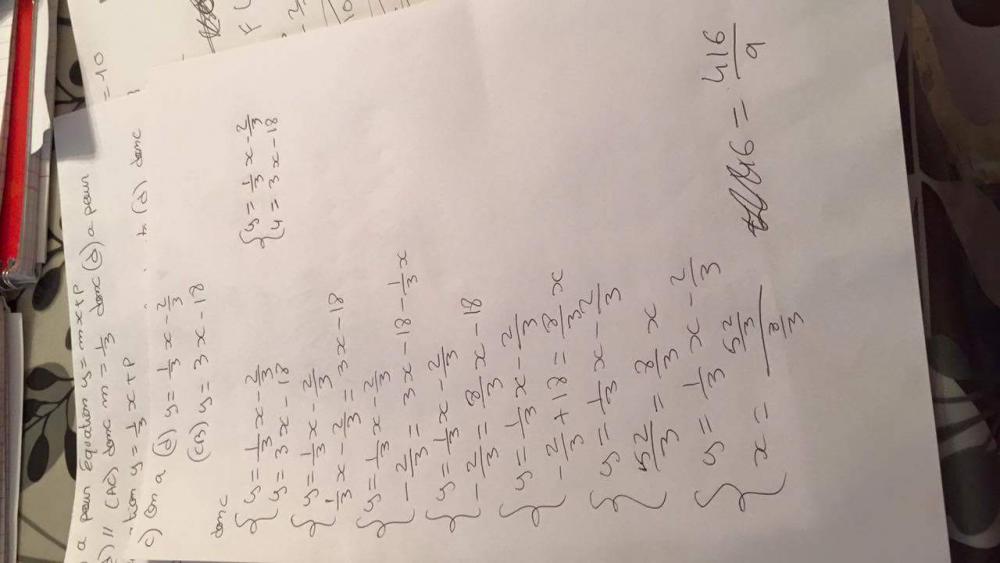 a pour Equation y = mx+p
) // (AC) donc m = 1/3 donc (d) a pour
tion y = 1/3 x + p
= 10
c) On a (d) y = 1/3 x - 2/3
(d) donc
(CB) y = 3x - 18
donc
{ y = 1/3 x - 2/3
y = 3x - 18
{ y = 1/3 x - 2/3
4 = 3x - 18
{ y = 1/3 x - 2/3
1/3 x - 2/3 = 3x - 18
{ y = 1/3 x - 2/3
- 2/3 = 3x - 18 - 1/3 x
{ y = 1/3 x - 2/3
- 2/3 = 8/3 x - 18
{ y = 1/3 x - 2/3
- 2/3 + 18 = 8/3 x
{ y = 1/3 x - 2/3
52/3 = 8/3 x
{ y = 1/3 x - 2/3
x = 52/3 / 8/3
46 = 416/9